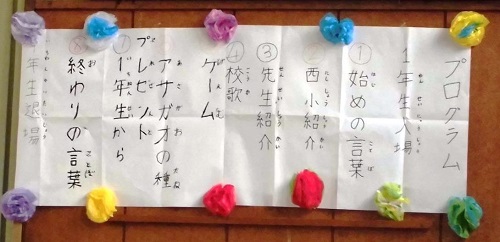 プログラム
1年生入場
①始めの言葉
②西小紹介
③先生紹介
④校歌
ゲーム
アサガオの種
プレゼント
⑦1年生から
⑧終わりの言葉
年生退場